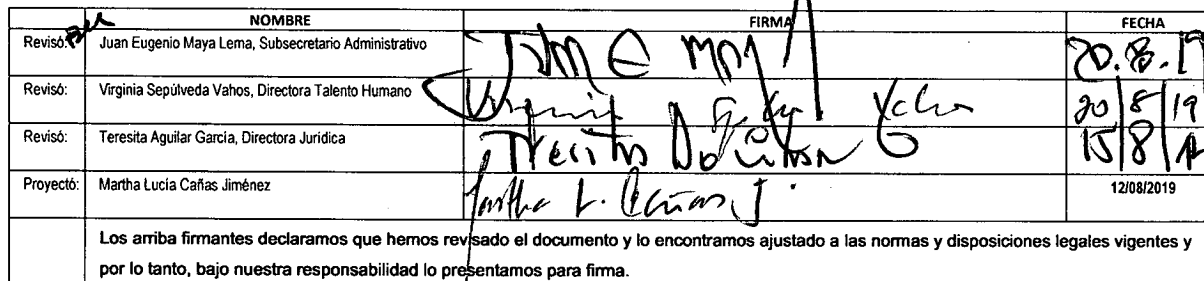 NOMBRE FIRMA FECHA
Revisó: Juan Eugenio Maya Lema, Subsecretario Administrativo Juan E May 20.8.19
Revisó: Virginia Sepúlveda Vahos, Directora Talento Humano Virginia 20/8/19
Revisó: Teresita Aguilar García, Directora Jurídica Teresita 15/8/
Proyectó: Martha Lucía Cañas Jiménez Martha L. Cañas J. 12/08/2019
Los arriba firmantes declaramos que hemos revisado el documento y lo encontramos ajustado a las normas y disposiciones legales vigentes y
por lo tanto, bajo nuestra responsabilidad lo presentamos para firma.